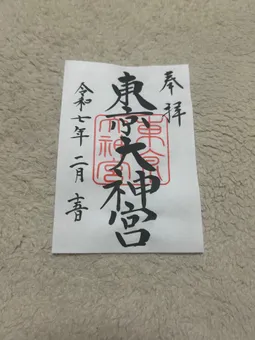 奉拝
東京大神宮
東京
大神宮
令和七年二月